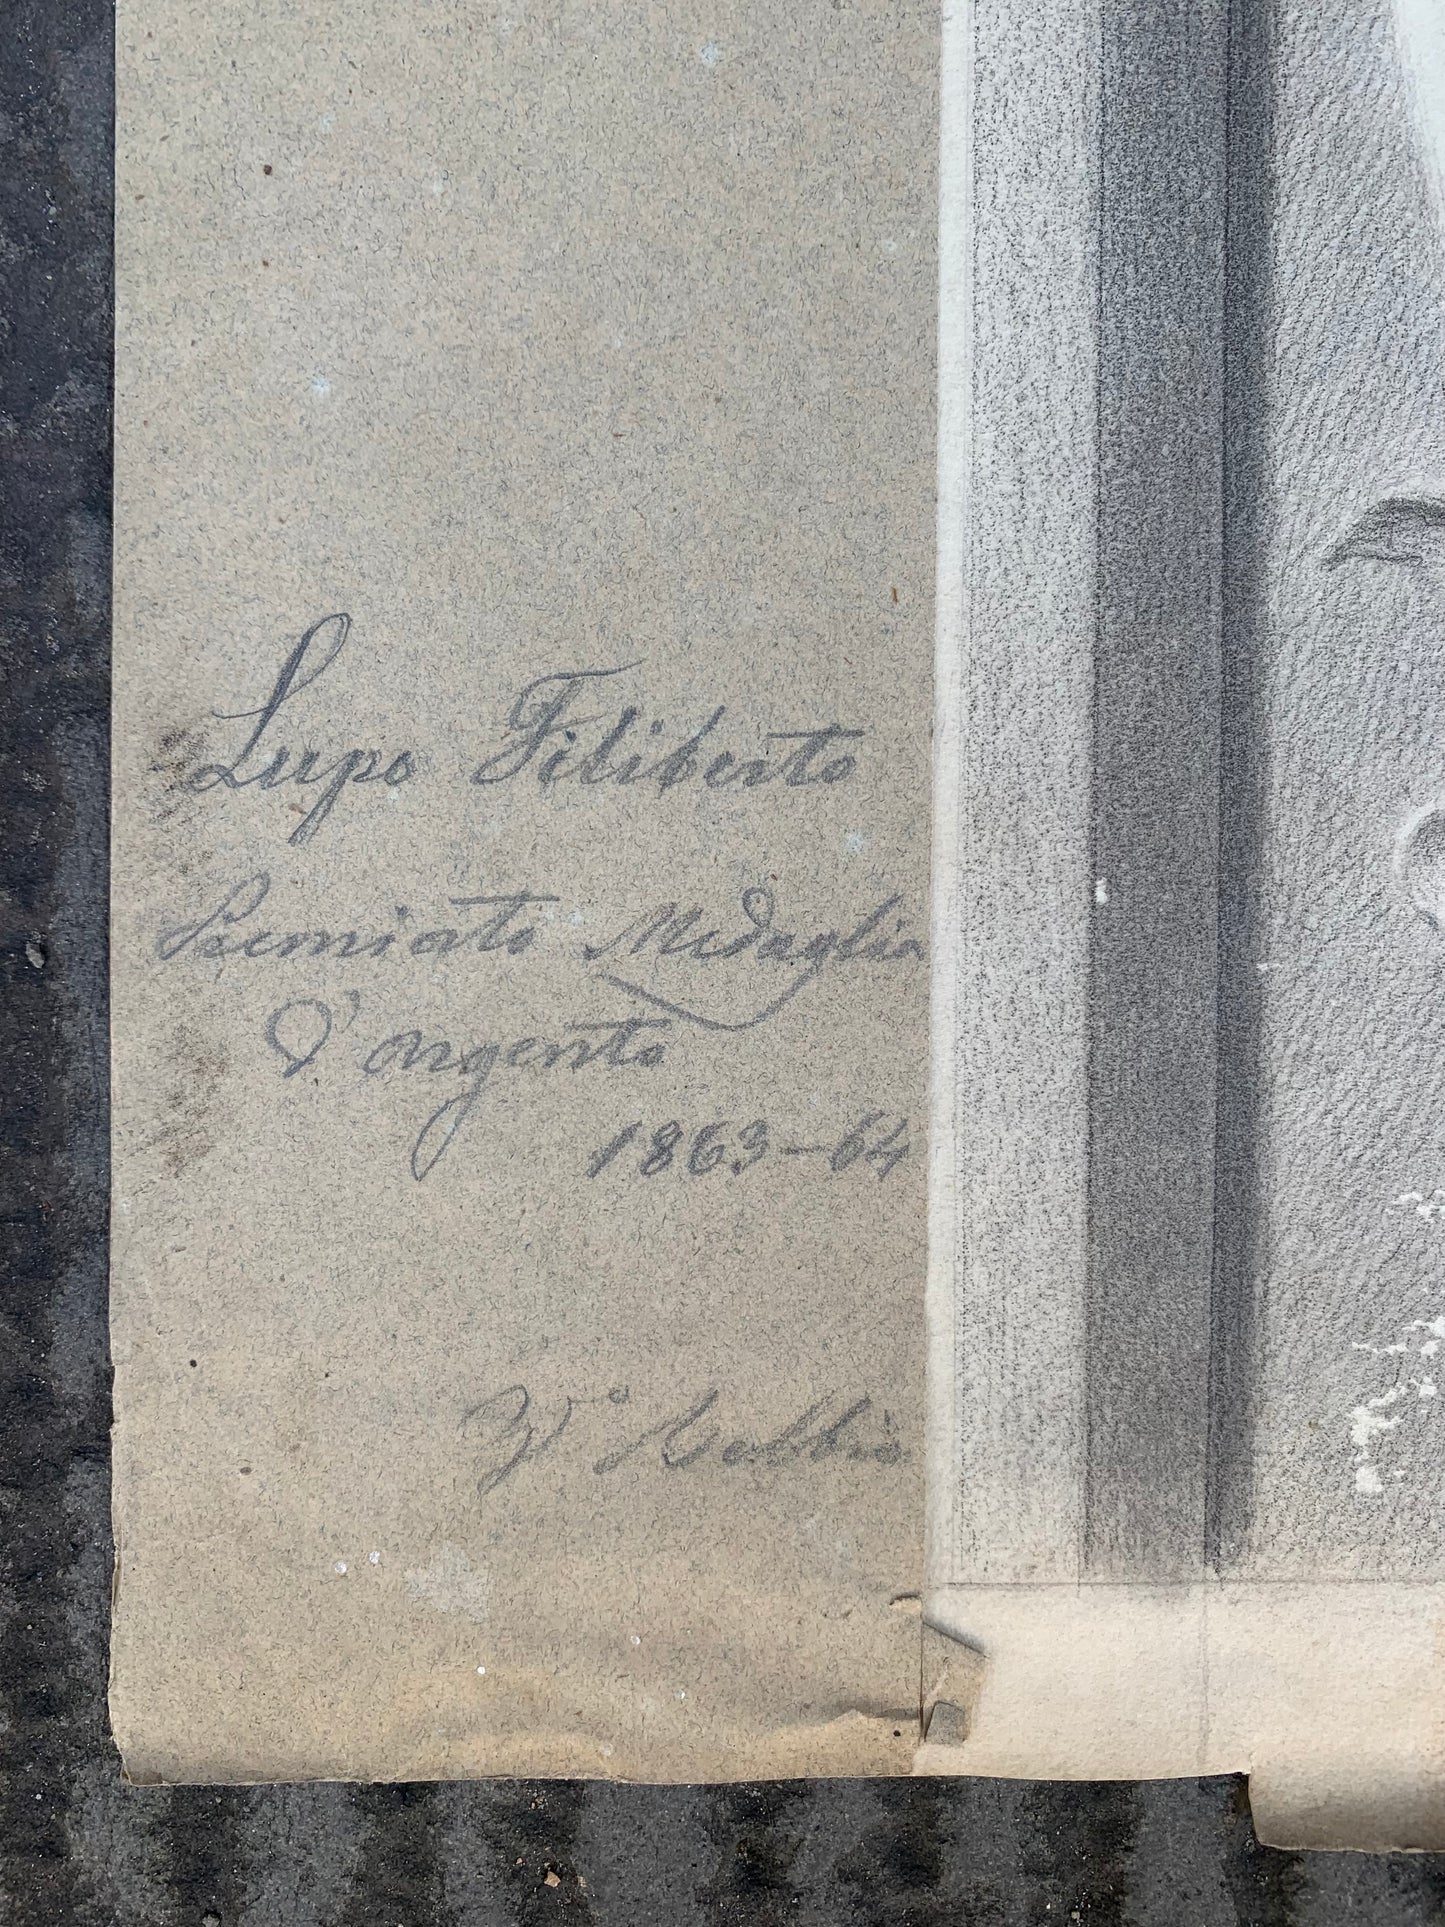 Lupo Filiberto
Premiato Medaglia
D'argento
1863-64
V°